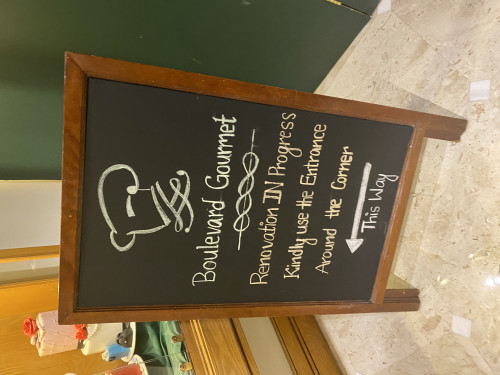 Boulevard Gourmet
Renovation IN Progress
Kindly use the Entrance
Around the Corner
This Way